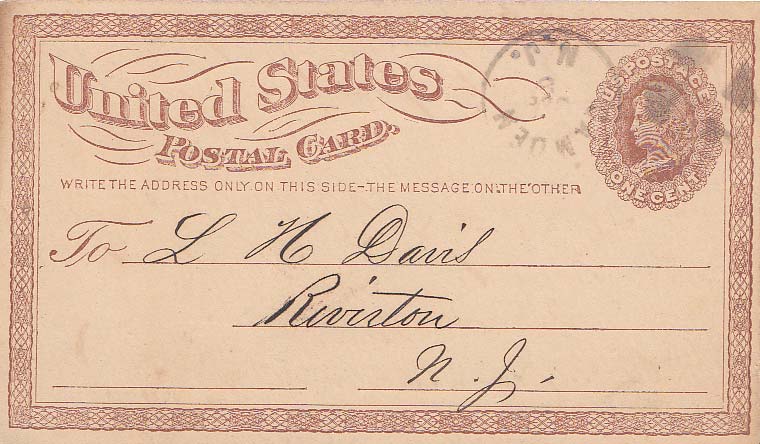 United States
POSTAL CARD.
N.J.
U.S. POSTAGE
ONE CENT
WRITE THE ADDRESS ONLY ON THIS SIDE-THE MESSAGE ON THE OTHER
To L H Davis
Riverton
N. J.